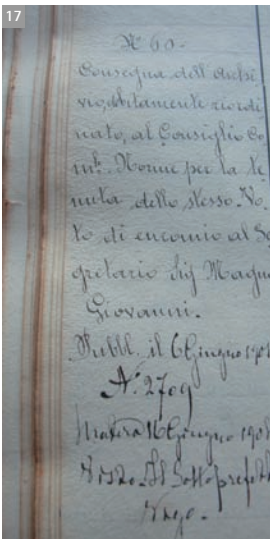 17
Nº 60-
Consegna dell'archi
vio, debitamente riordi
nato, al Consiglio Co
mle. Norme per la te
nuta dello stesso. Vo
to di encomio al Se
gretario Sig Magn
Giovanni.
Pubbl. il 6 Giugno 190
Nº 2709
16 Giugno 190
Visto. Il Sottoprefetto